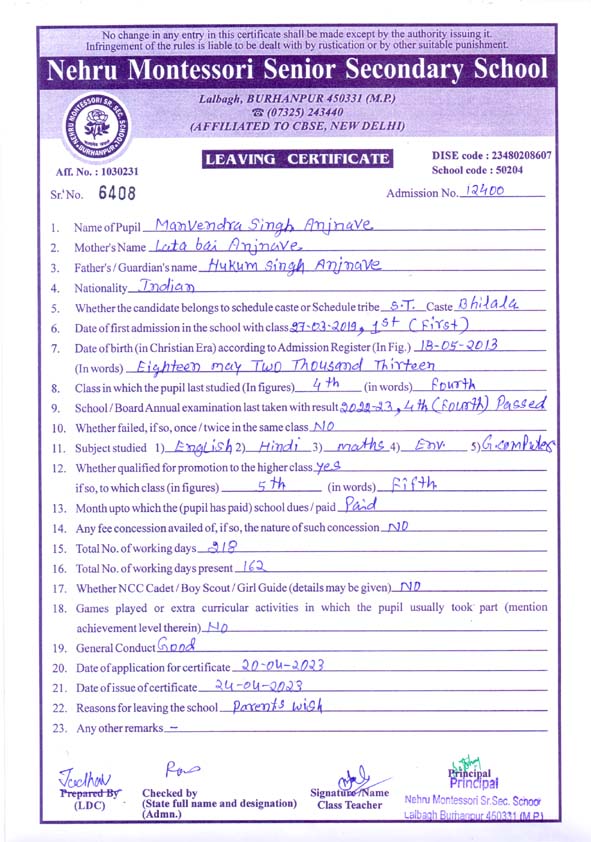 No change in any entry in this certificate shall be made except by the authority issuing it.
Infringement of the rules is liable to be dealt with by rustication or by other suitable punishment.
Nehru Montessori Senior Secondary School
NEHRU MONTESSORI SR. SEC. SCHOOL
BURHANPUR
Lalbagh, BURHANPUR 450331 (M.P.)
☎ (07325) 243440
(AFFILIATED TO CBSE, NEW DELHI)
Aff. No. : 1030231
LEAVING CERTIFICATE
DISE code : 23480208607
School code : 50204
Sr. No. 6408
Admission No. 12400
1. Name of Pupil Manvendra Singh Anjnave
2. Mother's Name Lata bai Anjnave
3. Father's / Guardian's name Hukum singh Anjnave
4. Nationality Indian
5. Whether the candidate belongs to schedule caste or Schedule tribe S.T. Caste Bhilala
6. Date of first admission in the school with class 27-03-2019, 1st (First)
7. Date of birth (in Christian Era) according to Admission Register (In Fig.) 18-05-2013
(In words) Eighteen may Two Thousand Thirteen
8. Class in which the pupil last studied (In figures) 4th (in words) Fourth
9. School / Board Annual examination last taken with result 2022-23, 4th (Fourth) Passed
10. Whether failed, if so, once / twice in the same class NO
11. Subject studied 1) English 2) Hindi 3) maths 4) Env. 5) G.computer
12. Whether qualified for promotion to the higher class yes
if so, to which class (in figures) 5th (in words) Fifth
13. Month upto which the (pupil has paid) school dues / paid Paid
14. Any fee concession availed of, if so, the nature of such concession NO
15. Total No. of working days 218
16. Total No. of working days present 162
17. Whether NCC Cadet / Boy Scout / Girl Guide (details may be given) NO
18. Games played or extra curricular activities in which the pupil usually took part (mention
achievement level therein) No
19. General Conduct Good
20. Date of application for certificate 20-04-2023
21. Date of issue of certificate 24-04-2023
22. Reasons for leaving the school Parents wish
23. Any other remarks –
Prepared By
(LDC)
Checked by
(State full name and designation)
(Admn.)
Signature/Name
Class Teacher
Principal
Principal
Nehru Montessori Sr.Sec. School
Lalbagh Burhanpur 450331 (M.P.)